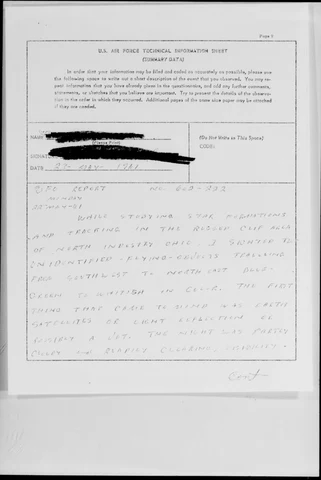 Page 5
U.S. AIR FORCE TECHNICAL INFORMATION SHEET
(SUMMARY DATA)
In order that your information may be filed and coded as accurately as possible, please use
the following space to write out a short description of the event that you observed. You may re-
peat information that you have already given in the questionnaire, and add any further comments,
statements, or sketches that you believe are important. Try to present the details of the observa-
tion in the order in which they occurred. Additional pages of the same size paper may be attached
if they are needed.
NAME
(Please Print)
SIGNATURE
DATE
(Do Not Write in This Space)
CODE:
REPORT NO.
WHILE STUDYING STAR FORMATIONS
AND TRACKING IN THE AREA
OF NORTH INDUSTRY OHIO. I SIGHTED TO
UNIDENTIFIED - FLYING - OBJECTS TRAVELING
FROM TO NORTH EAST
TO WHITISH IN COLOR. THE FIRST
THING THAT CAME TO MIND WAS
SATELLITES OR LIGHT REFLECTION OF
A JET. THE NIGHT WAS PARTLY
AND RAPIDLY CLEARING.
Con't